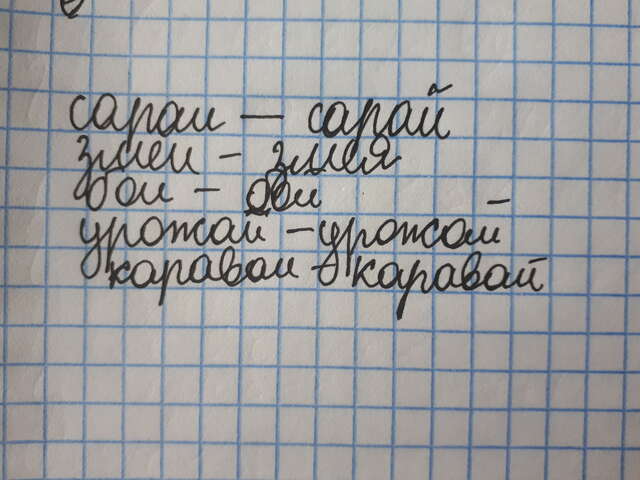 сараи — сарай
змеи - змея
бои - бой
урожаи - урожай
караваи - каравай